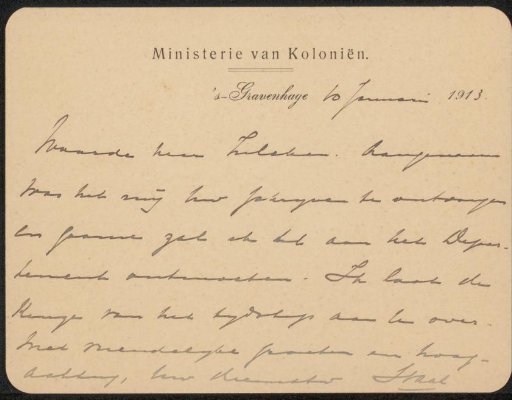 Ministerie van Koloniën.
's-Gravenhage 10 Januari 1913.
Waarde heer Zilcken. Aangenaam
was het mij Uw schrijven te ontvangen
en gaarne zal ik U aan het Depar-
tement ontmoeten. Ik laat de
keuze van het tijdstip aan U over.
Met vriendelijke groeten en hoog-
achting, Uw dienstw